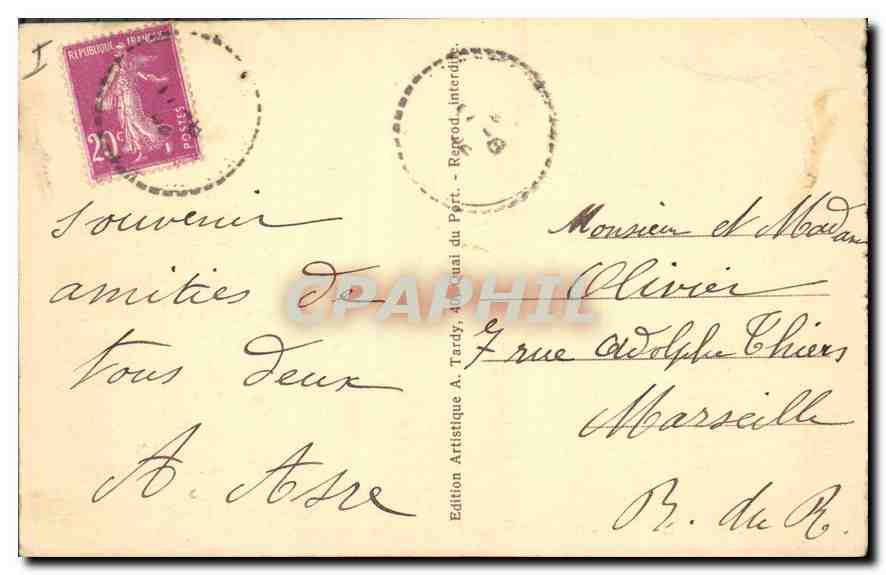 RÉPUBLIQUE FRANÇAISE
20c
POSTES
souvenir
amitiés de
tous deux
A. Asre
Edition Artistique A. Tardy, 40, Quai du Port. - Reprod. interdite.
Monsieur et Madame
Olivier
7 rue Adolphe Thiers
Marseille
B. du R.
CPAPHIL